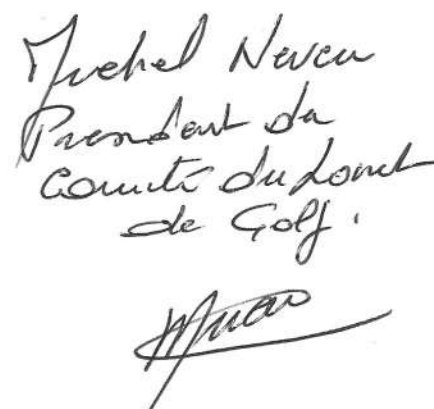 Michel Neveu
President du
Comité du Loiret
de Golf.